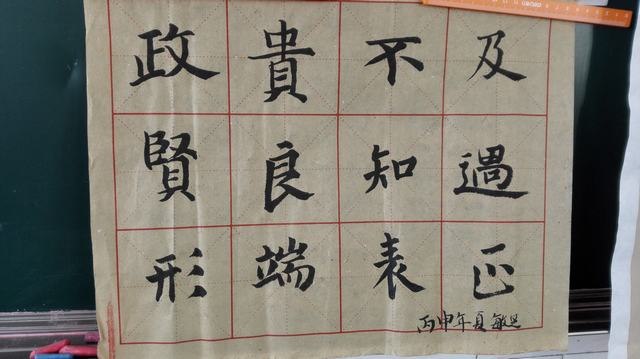 政貴不及
賢良知過
形端表正
丙申年夏敏